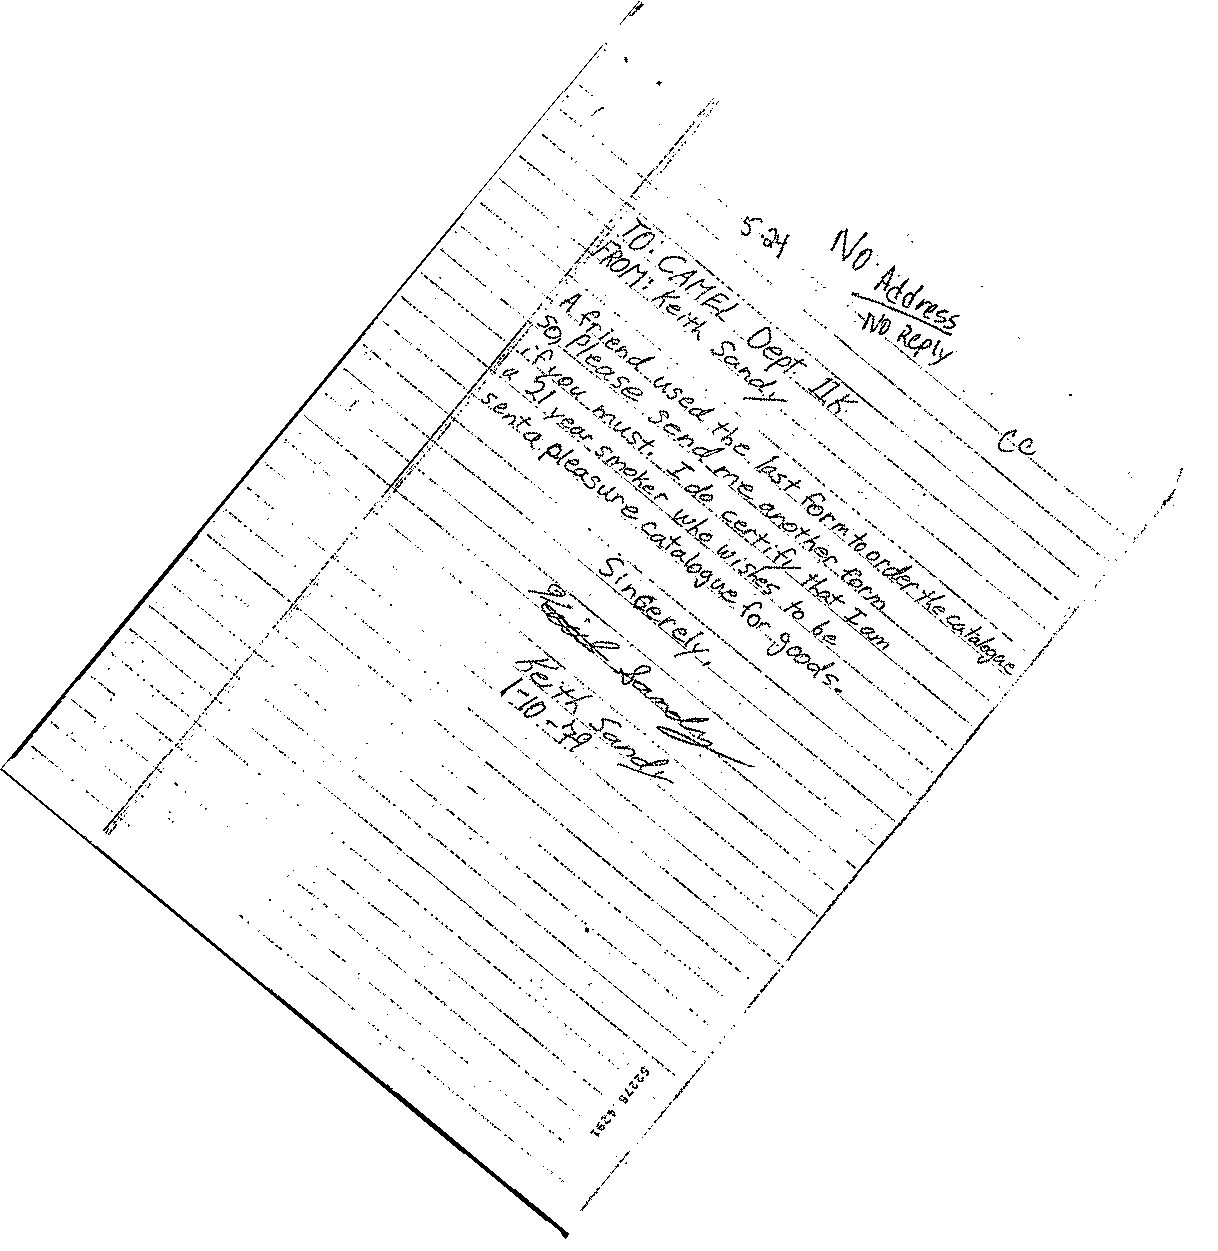 5-24 No Address
-No Reply
CC
TO: CAMEL Dept. IIK
FROM: Keith Sandy
A friend used the last form to order the catalogue
so, please send me another form
if you must. I do certify that I am
a 21 year smoker who wishes to be
sent a pleasure catalogue for goods.
Sincerely,
Keith Sandy
Keith Sandy
1-10-79
52276 4291